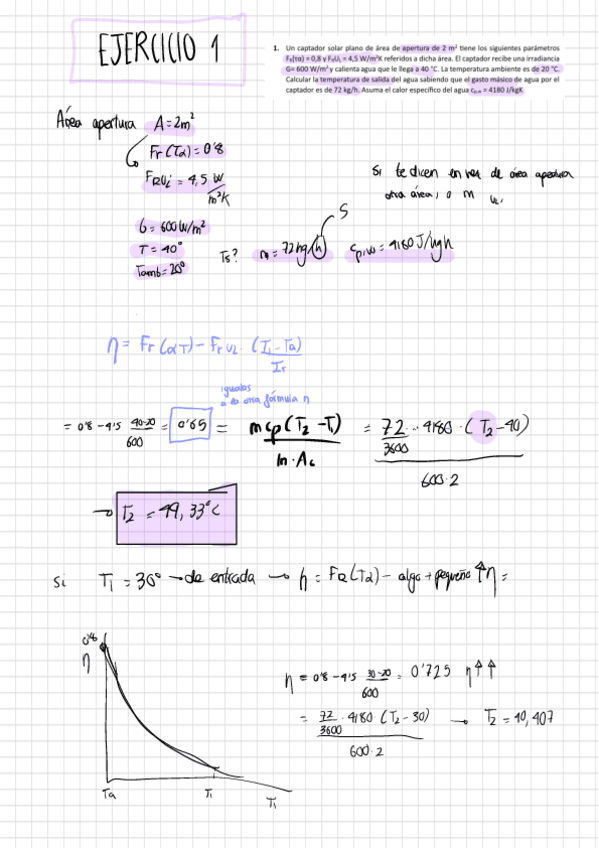 EJERCICIO 1
1. Un captador solar plano de área de apertura de 2 m² tiene los siguientes parámetros
FR(τα) = 0,8 y FRUL = 4,5 W/m²K referidos a dicha área. El captador recibe una irradiancia
G= 600 W/m² y calienta agua que le llega a 40 °C. La temperatura ambiente es de 20 °C.
Calcular la temperatura de salida del agua sabiendo que el gasto másico de agua por el
captador es de 72 kg/h. Asuma el calor específico del agua cp,w = 4180 J/kgK
Área apertura A = 2m²
Fr (Tα) = 0'8
FRUL = 4,5 W/m²K
Si te dicen en vez de área apertura
otra área, o m
G = 600 W/m²
T = 40°
Tamb = 20°
Ts?
m = 72 kg/h
S
cp,w = 4180 J/kg k
η = Fr (αT) - Fr UL · (T1 - Ta) / Ir
igualas
a la otra fórmula η
= 0'8 - 4'5 (40-20)/600 = 0'65 = m cp (T2 - T1) / In · Ac = 72/3600 · 4180 · (T2 - 40) / 600 · 2
→ T2 = 49,33°C
Si T1 = 30° → de entrada → η = FR(Tα) - algo + pequeño ↑η =
0'8
η
Ta
T1
T1
η = 0'8 - 4'5 (30-20)/600 = 0'725 η↑↑
= 72/3600 · 4180 (T2 - 30) / 600 · 2 → T2 = 40,407